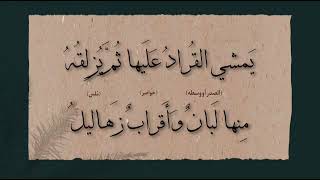 يَمشي القُرادُ عَلَيها ثُمَّ يُزلِقُهُ
(الصدر أو وسطه) (خواصر) (ملس)
مِنها لَبانٌ وَأَقرابٌ زَهاليلُ